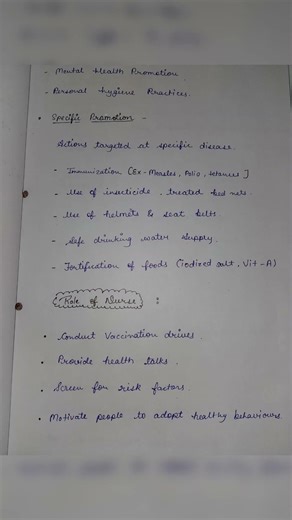 - Mental Health Promotion.
- Personal hygiene Practices.
• Specific Promotion -
Actions targeted at specific disease.
- Immunization [Ex - Measles, Polio, tetanus]
- Use of insecticide - treated bed nets.
- Use of helmets & seat belts.
- Safe drinking water supply.
- Fortification of foods (iodized salt, Vit-A)
Role of Nurse :
• Conduct Vaccination drives.
• Provide health talks.
• Screen for risk factors.
• Motivate people to adopt healthy behaviours